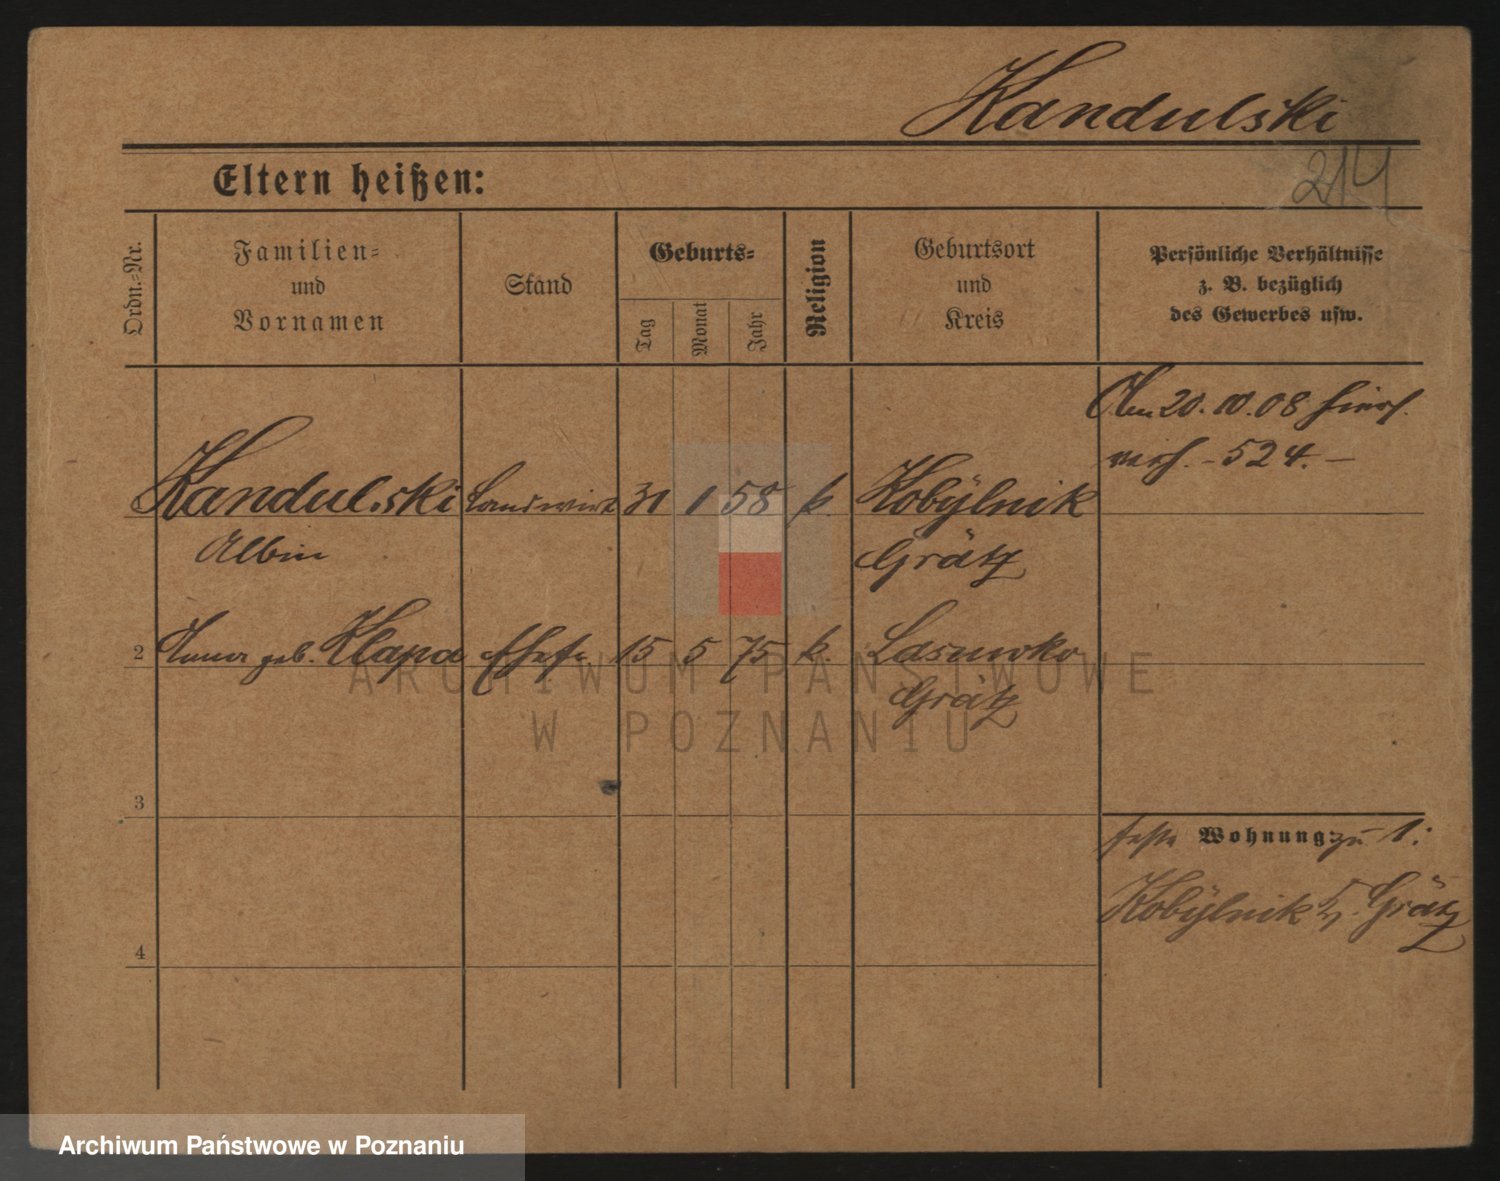 Kandulski
214
Eltern heißen:
Ordn.-Nr.
Familien-
und
Vornamen
Stand
Geburts-
Tag
Monat
Jahr
Religion
Geburtsort
und
Kreis
Persönliche Verhältnisse
z. B. bezüglich
des Gewerbes usw.
Am 20. 10. 08 hiers.
verh. - 524. -
Kandulski Landwirt 31 1 58 k. Kobylnik
Albin Grätz
2 Anna geb. Klapa Ehefr. 15 5 75 k. Grätz
3
feste Wohnung: zu 1:
Kobylnik Kr. Grätz
4
ARCHIWUM PAŃSTWOWE
W POZNANIU
Archiwum Państwowe w Poznaniu